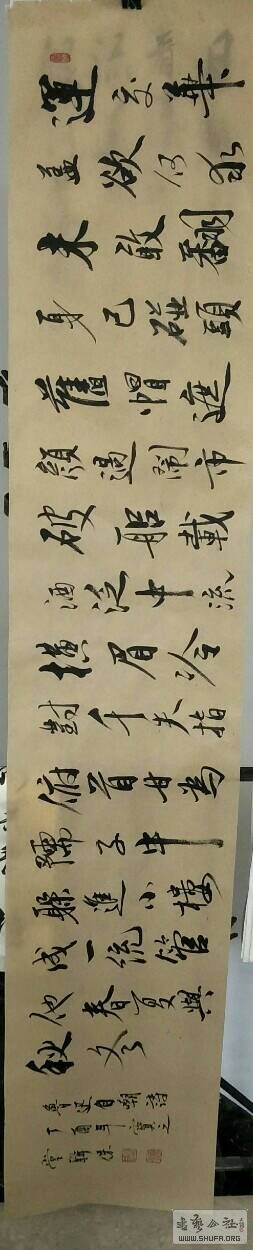 運交華
蓋欲何求
未敢翻
身已碰頭
舊帽遮
顏過鬧市
破船載
酒泛中流
橫眉冷
對千夫指
俯首甘為
孺子牛
躲進小樓
成一統管
他春夏與
秋冬
魯迅自嘲詩
丁酉年
书艺公社
WWW.SHUFA.ORG